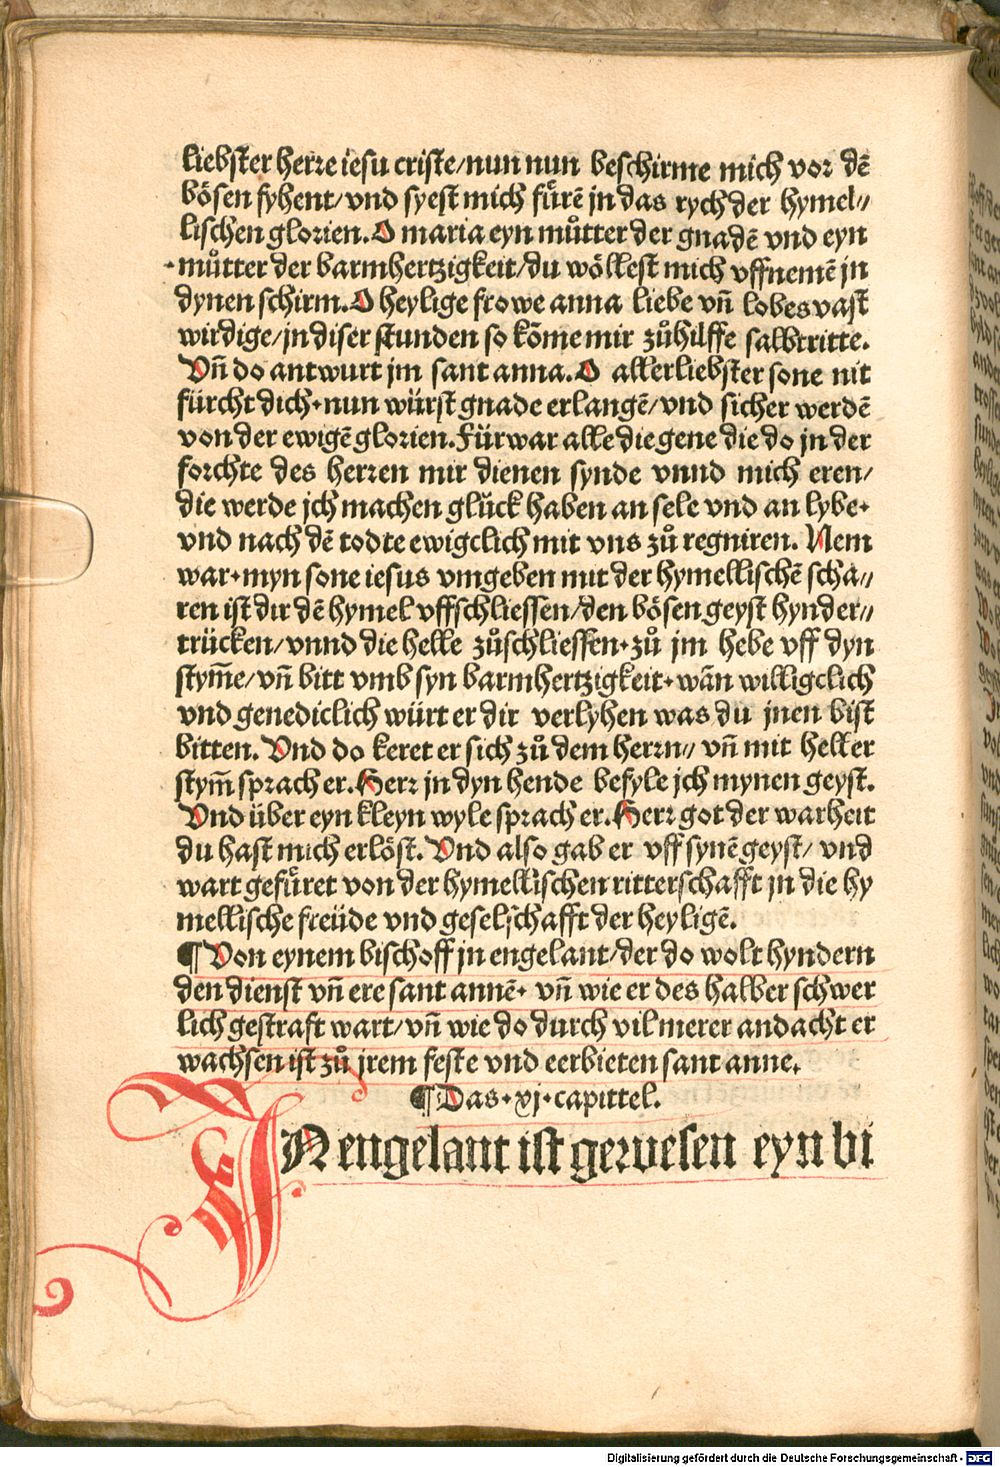 liebster herre iesu criste/nun nun beschirme mich vor dē
bösen fyhent/vnd syest mich fuͤrē jn das rych der hymel//
lischen glorien. O maria eyn můtter der gnadē vnd eyn
můtter der barmhertzigkeit/du wöllest mich vffnemē jn
dynen schirm. O heylige frowe anna liebe vn̄ lobes vast
wirdige/jn diser stunden so kōme mir zůhilffe salbtritte.
Vn̄ do antwurt jm sant anna. O allerliebster sone nit
fürcht dich·nun würst gnade erlangē/vnd sicher werdē
von der ewigē glorien. Fürwar alle die gene die do jn der
forchte des herren mir dienen synde vnnd mich eren/
die werde jch machen glück haben an sele vnd an lybe·
vnd nach dē todte ewigclich mit vns zů regniren. Nem
war·myn sone iesus vmgeben mit der hymellischē scha//
ren ist dir dē hymel vffschliessen/den bösen geyst hynder//
trücken/vnnd die helle zůschliessen·zů jm hebe vff dyn
stym̄e/vn̄ bitt vmb syn barmhertzigkeit·wān willigclich
vnd genediclich würt er dir verlyhen was du jnen bist
bitten. Vnd do keret er sich zů dem herrn// vn̄ mit heller
stym̄ sprach er. Herr jn dyn hende befyle jch mynen geyst.
Vnd über eyn kleyn wyle sprach er. Herr got der warheit
du hast mich erlöst. Vnd also gab er vff synē geyst/ vnd
wart gefuͤret von der hymellischen ritterschafft jn die hy
mellische freüde vnd geselschafft der heyligē.
¶ Von eynem bischoff jn engelant/der do wolt hyndern
den dienst vn̄ ere sant annē· vn̄ wie er des halber schwer
lich gestraft wart/vn̄ wie do durch vil merer andacht er
wachsen ist zů jrem feste vnd eerbieten sant anne.
¶ Das·xj·capittel.
JN engelant ist gewesen eyn bi
Digitalisierung gefördert durch die Deutsche Forschungsgemeinschaft - DFG